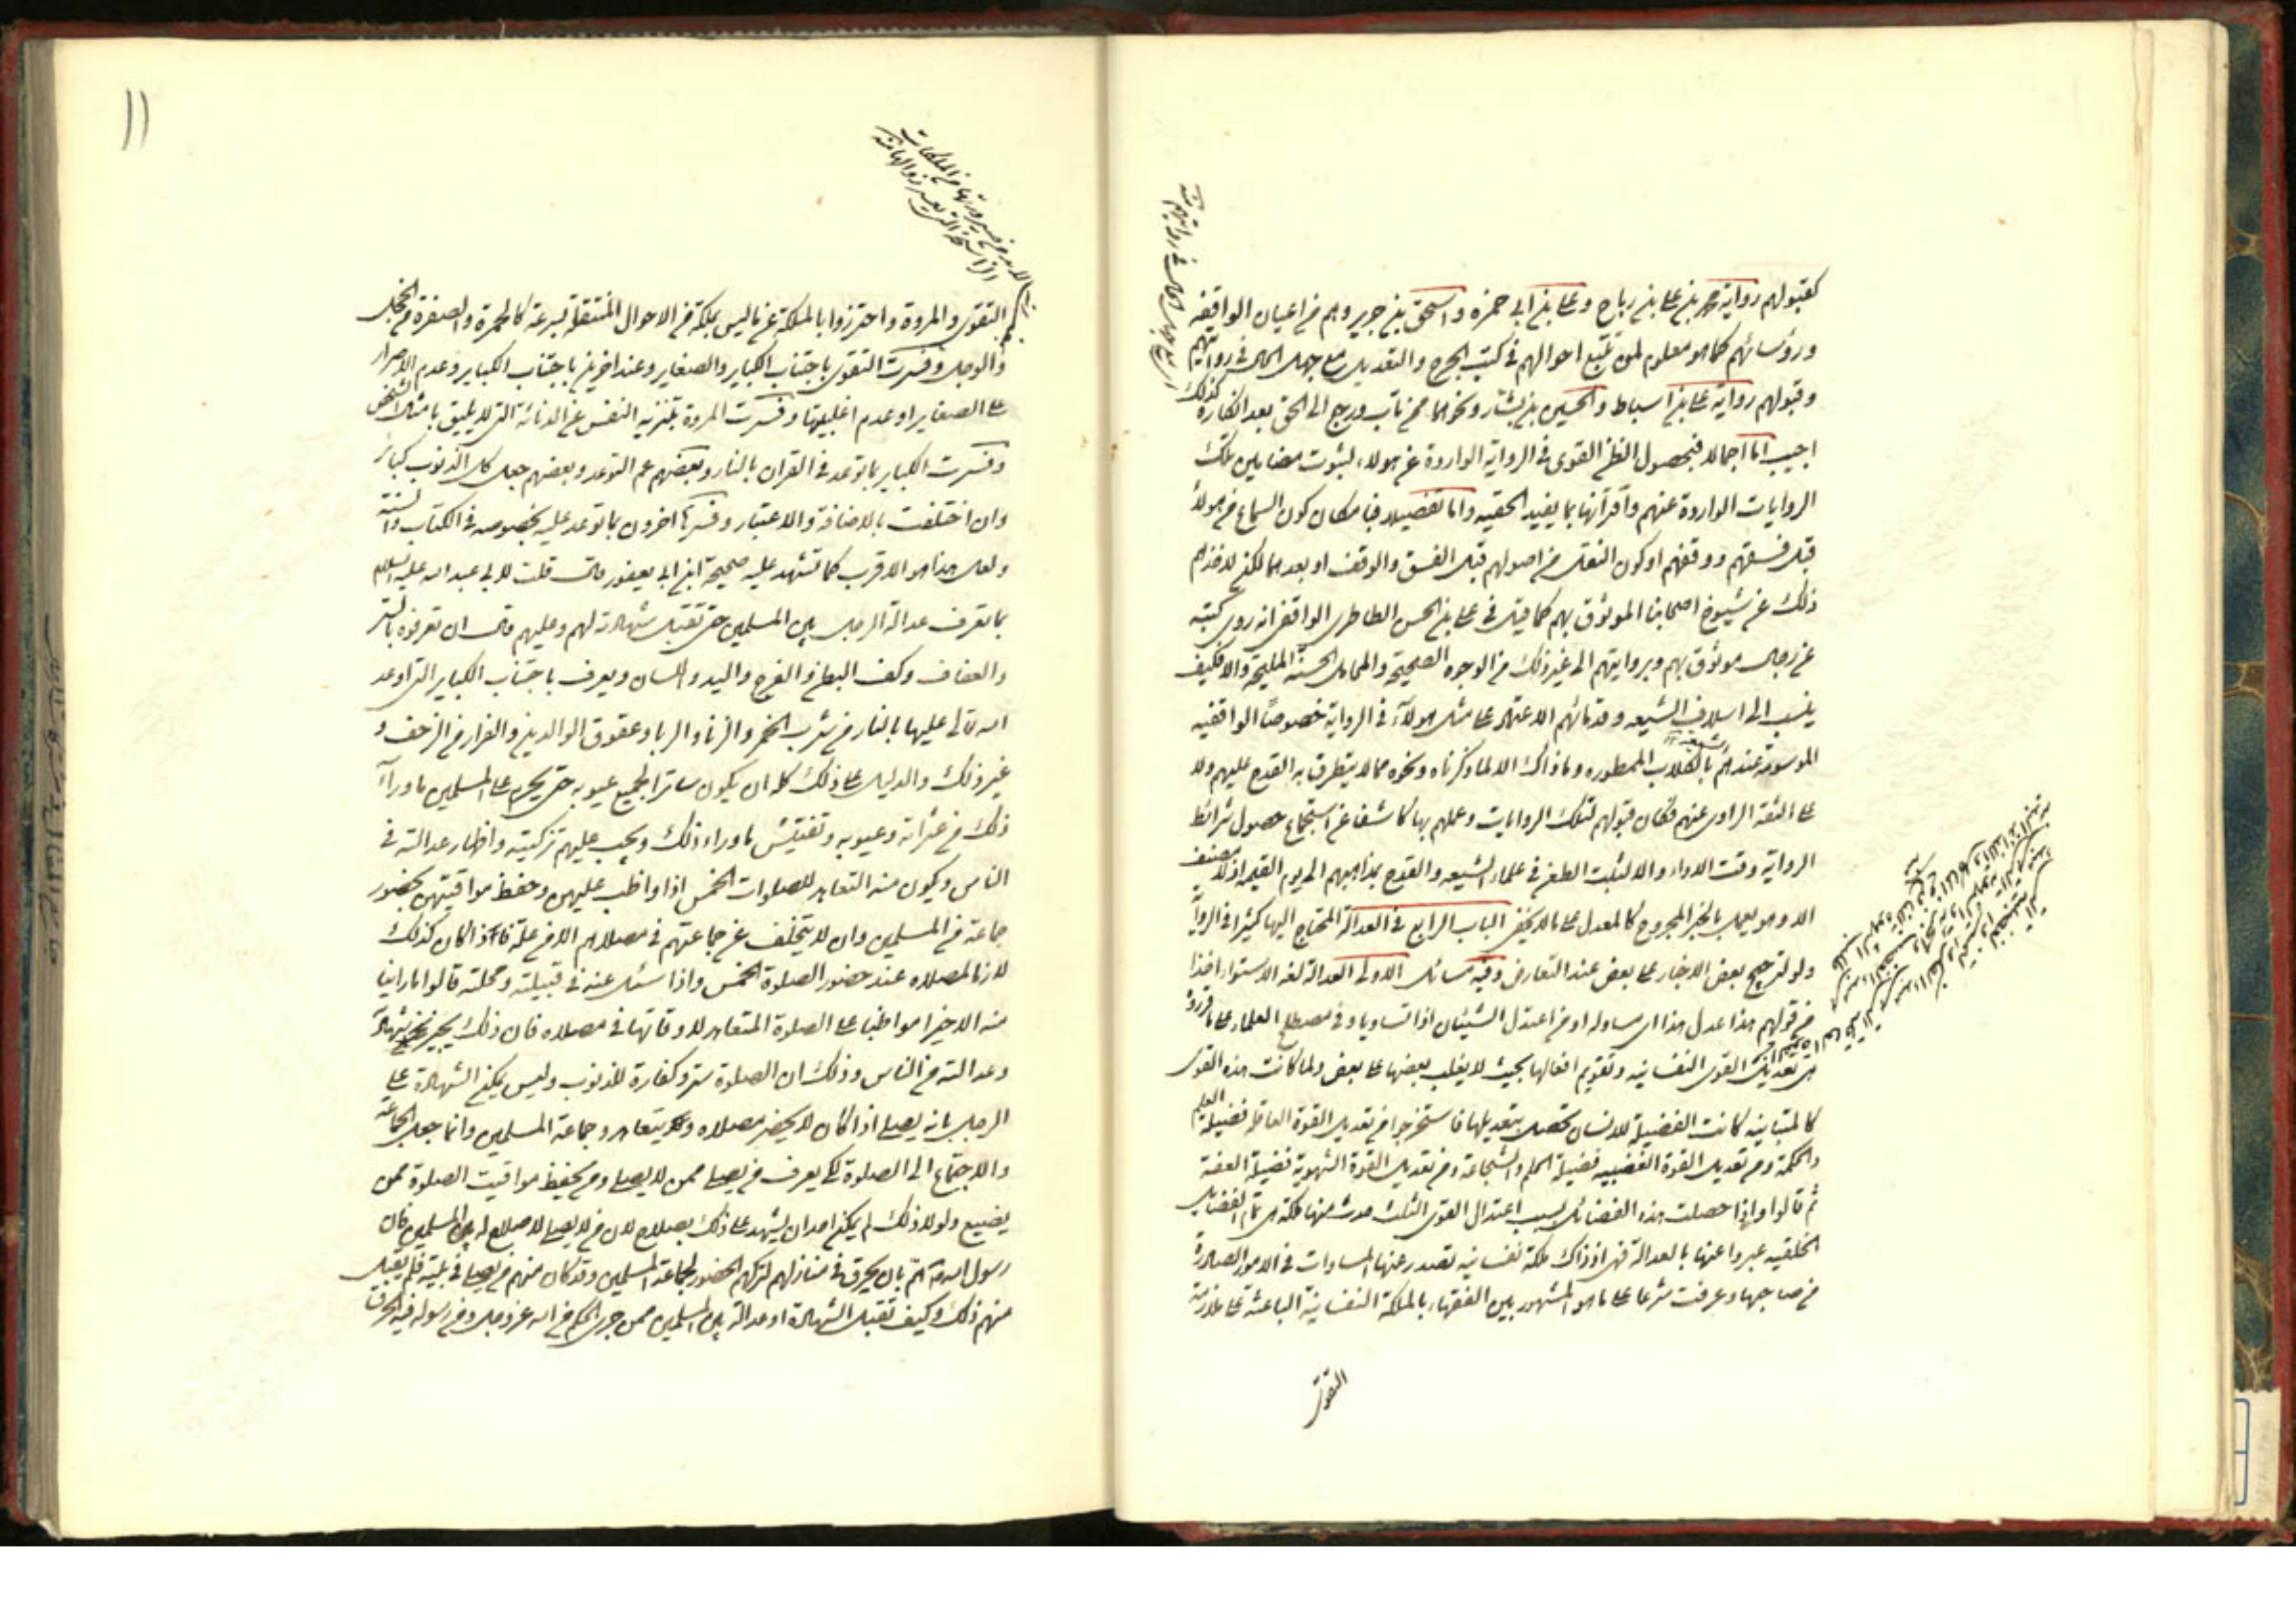 كقبولهم رواية محمد بن علي بن رباح وعلي بن ابي حمزه واسحق بن جرير وهم من اعيان الواقفه
ورؤسائهم كما هو معلوم لمن تتبع احوالهم في كتب الجرح والتعديل مع جهل الحال في روايتهم
وقبولهم رواية علي بن اسباط والحسين بن بشار ونحوهما ممن تاب ورجع الى الحق بعد انكاره كذلك
اجيب اما اجمالا فبحصول الظن القوى في الرواية الواردة عن هولاء لثبوت مضامين تلك
الروايات الواردة عنهم واقرانها بما يفيد الحقيه واما تفصيلا فبامكان كون السماع من هولاء
قبل فسقهم ووقفهم او كون النقل من اصولهم قبل الفسق والوقف او بعدهما لكن لاخذهم
ذلك عن شيوخ اصحابنا الموثوق بهم كما قيل في علي بن الحسن الطاطري الواقفي انه روى كتبه
عن رجال موثوق بهم وبروايتهم الى غير ذلك من الوجوه الصحيحة والمحامل الحسنة المليحة والا فكيف
ينسب الى اسلاف الشيعه وقدمائهم الاعتماد على مثل هولاء في الرواية خصوصا الواقفيه
الموسومة عندهم بالكلاب الممطوره وما ذاك الا لما ذكرناه ونحوه مما لا يتطرق به القدح عليهم ولا
على الثقة الراوى عنهم فكان قبولهم لتلك الروايات وعملهم بها كاشفا عن استجماع حصول شرائط
الرواية وقت الاداء والا لثبت الطعن في علماء الشيعه والقدح بمذاهبهم الى يوم القيمه اذ لا مصنف
الا وهو يعمل بالخبر المجروح كالمعدل على ما لا يخفى الباب الرابع في العدالة المحتاج اليها كثيرا في الرواية
ولو لترجيح بعض الاخبار على بعض عند التعارض وفيه مسائل الاولى العدالة لغة الاستواء اخذا
من قولهم هذا عدل هذا اى مساو له او من اعتدل الشيئان اذا تساويا وفي مصطلح العلماء على ما قرروه
هى تعديل القوى النفسانيه وتقويم افعالها بحيث لا يغلب بعضها على بعض ولما كانت هذه القوى
كالمتباينه كانت الفضيلة للانسان تحصل بتعديلها فاستخرجوا من تعديل القوة العاقلة فضيلة العلم
والحكمة ومن تعديل القوة الغضبيه فضيلة الحلم والشجاعة ومن تعديل القوة الشهوية فضيلة العفة
ثم قالوا واذا حصلت هذه الفضائل بسبب اعتدال القوى الثلث حدث منها ملكة هى تمام الفضايل
الخلقيه عبروا عنها بالعدالة فهى اذ ذاك ملكة نفسانيه تصدر عنها المساوات في الامور الصادرة
من صاحبها وعرفت شرعا على ما هو المشهور بين الفقهاء بالملكة النفسانية الباعثة على ملازمة
التقوى
١١
التقوى والمروة واحترزوا بالملكة عن ما ليس بملكة من الاحوال المنتقلة بسرعة كالحمرة والصفرة من الخجل
والوجل وفسرت التقوى باجتناب الكباير والصغاير وعند اخرين باجتناب الكباير وعدم الاصرار
على الصغاير او عدم اغلبيتها وفسرت المروة بتنزيه النفس عن الدنائة التى لا يليق بامثال الشخص
وفسرت الكباير بما توعد في القران بالنار وبعضهم عمم التوعد وبعضهم جعل كل الذنوب كبائر
وان اختلفت بالاضافة والاعتبار وفسرها اخرون بما توعد عليه بخصوصه في الكتاب والسنة
ولعل هذا هو الاقرب كما تشهد عليه صحيحة ابن ابي يعفور قال قلت لابي عبد الله عليه السلام
بما تعرف عدالة الرجل بين المسلمين حتى تقبل شهادته لهم وعليهم قال ان تعرفوه بالستر
والعفاف وكف البطن والفرج واليد واللسان ويعرف باجتناب الكباير التى اوعد
الله تعالى عليها بالنار من شرب الخمر والزنا والربا وعقوق الوالدين والفرار من الزحف و
غير ذلك والدليل على ذلك كله ان يكون ساترا لجميع عيوبه حتى يحرم على المسلمين ما وراء
ذلك من عثراته وعيوبه وتفتيش ما وراء ذلك ويجب عليهم تزكيته واظهار عدالته في
الناس ويكون منه التعاهد للصلوات الخمس اذا واظب عليهن وحفظ مواقيتهن بحضور
جماعة من المسلمين وان لا يتخلف عن جماعتهم في مصلاهم الا من علة فاذا كان كذلك
لازما لمصلاه عند حضور الصلوة الخمس واذا سئل عنه في قبيلته ومحلته قالوا ما راينا
منه الا خيرا مواظبا على الصلوة المتعاهد لاوقاتها في مصلاه فان ذلك يجيز شهادته
وعدالته من الناس وذلك ان الصلوة ستر وكفارة للذنوب وليس يمكن الشهادة على
الرجل بانه يصلى اذا كان لا يحضر مصلاه ويتعاهد جماعة المسلمين وانما جعل الجماعة
والاجتماع الى الصلوة لكى يعرف من يصلى ممن لا يصلى ومن يحفظ مواقيت الصلوة ممن
يضيع ولولا ذلك لم يمكن احد ان يشهد على ذلك بصلاح لان من لا يصلى لا صلاح له بين المسلمين فان
رسول الله ص هم بان يحرق في منازلهم لتركهم الحضور لجماعة المسلمين وقد كان منهم من يصلى في بيته فلم يقبل
منهم ذلك وكيف تقبل الشهادة او عدالة بين المسلمين ممن جرى الحكم من الله عز وجل ومن رسوله فيه الحرق